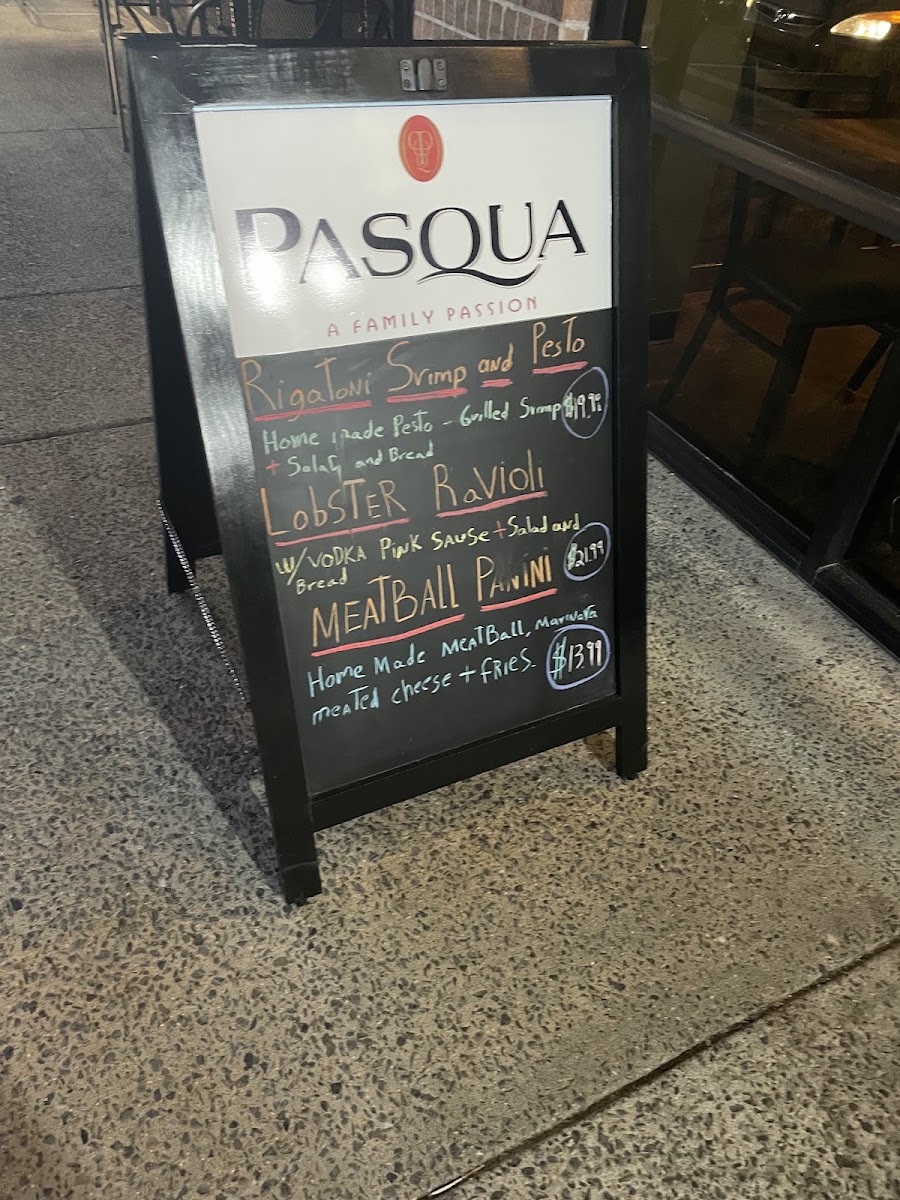 PASQUA
A FAMILY PASSION
Rigatoni Srimp and Pesto
Home made Pesto - Grilled Srimp $19.99
+ Salad and Bread
LobSTER Ravioli
W/VODKA PiNK SAUSe + Salad and
Bread $21.99
MEATBALL PANINI
Home Made MEATBall, MariNara
meATed cheese + fRiES. $13.99